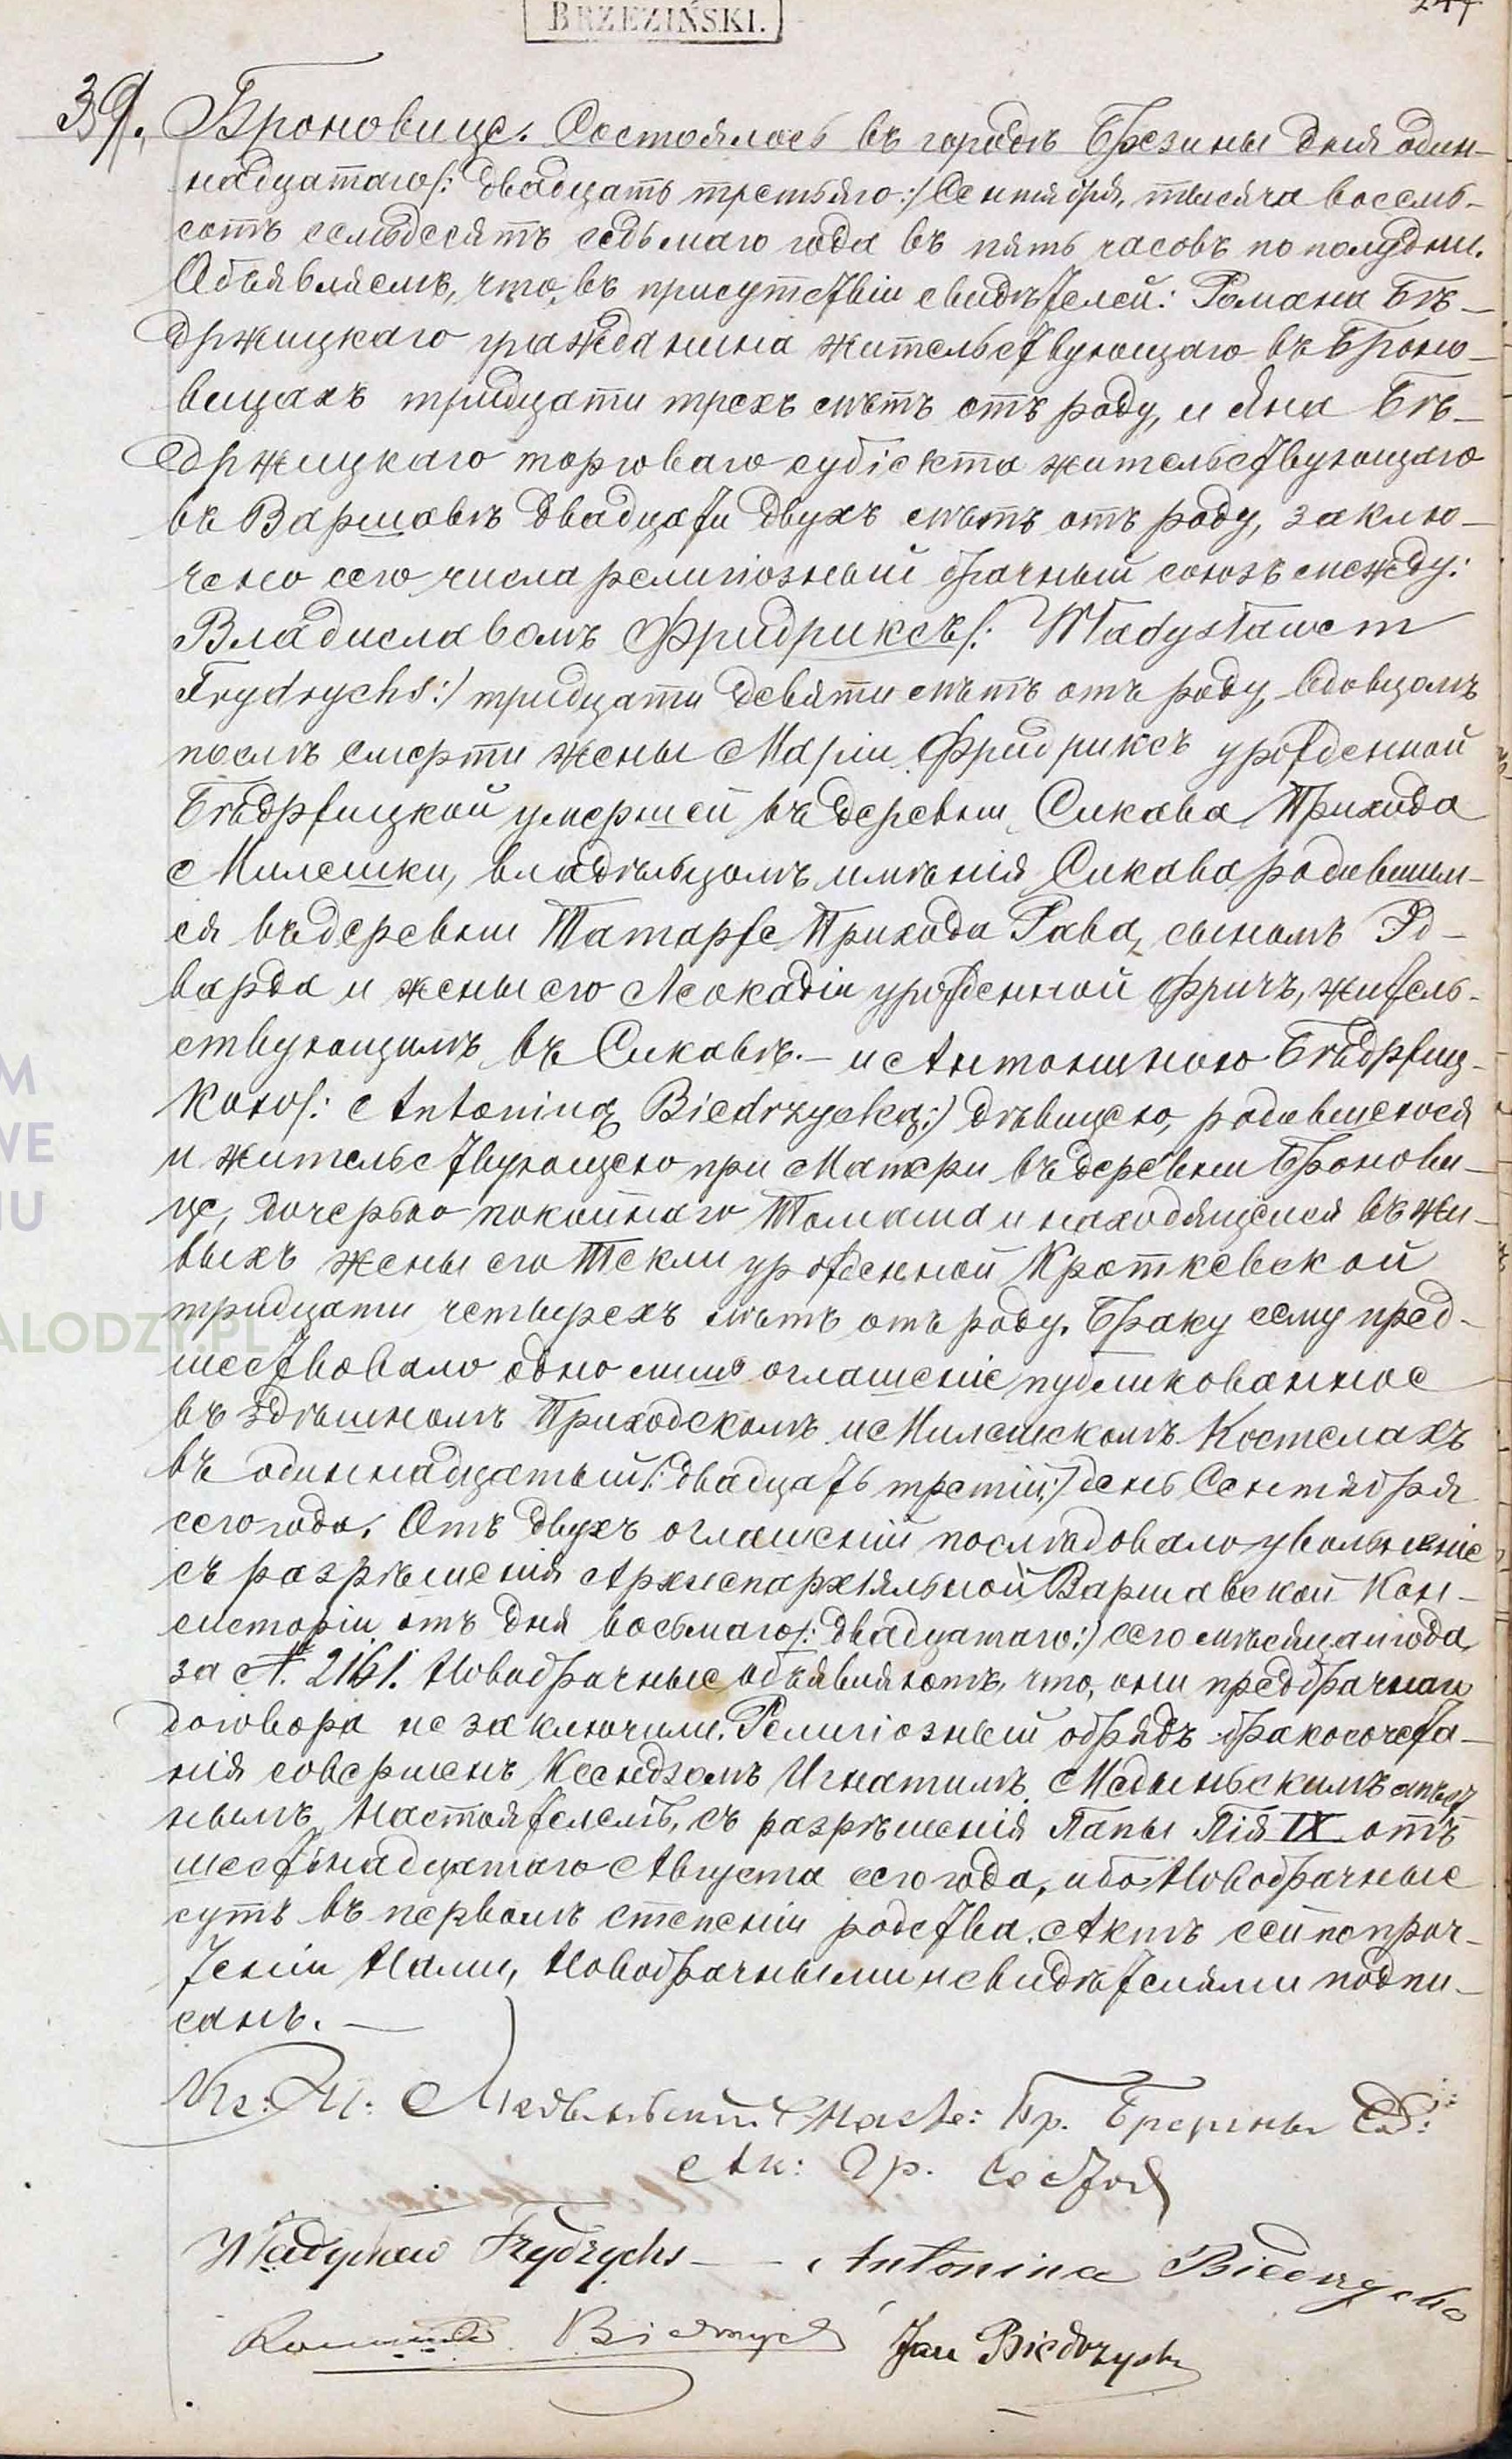 BRZEZIŃSKI.
39. Броновице. Состоялось въ городѣ Брезины дня один-
надцатаго /: двадцать третьяго :/ Сентября, тысяча восемь-
сотъ семьдесятъ седьмаго года въ пять часовъ по полудни.
Объявляемъ, что, въ присутствіи свидѣтелей: Романа Бѣ-
држицкаго гражданина жительствующаго въ Броно-
вицахъ тридцати трехъ лѣтъ отъ роду, и Яна Бѣ-
држицкаго торговаго субіекта жительствующаго
въ Варшавѣ двадцати двухъ лѣтъ отъ роду, заклю-
чено сего числа религіозный брачный союзъ между:
Владиславомъ Фридриксъ /: Władysławem
Frydrychs :/ тридцати девяти лѣтъ отъ роду, вдовцомъ
послѣ смерти жены Маріи Фридриксъ урожденной
Бѣдржицкой умершей въ деревни Сикава Прихода
Милешки, владѣльцомъ имѣнія Сикава родившим-
ся въ деревни Татарже Прихода Рава, сыномъ Эд-
варда и жены его Леокадіи урожденной Фричъ, житель-
ствующимъ въ Сикавѣ. — и Антониною Бѣдржиц-
кою /: Antoniną Biedrzycką :/ дѣвицею, родившеюся
и жительствующею при Матери въ деревни Бронови-
це, дочерью покойнаго Томаша и находящейся въ жи-
выхъ жены его Текли урожденной Кроткевской
тридцати четырехъ лѣтъ отъ роду. Браку сему пред-
шествовало одно лишь оглашеніе публикованное
въ здѣшномъ Приходскомъ и Милешскомъ Костелахъ
въ одиннадцатый /: двадцать третій :/ день Сентября
сего года. Отъ двухъ оглашеній послѣдовало увольненіе
съ разрѣшенія Архиепархіяльной Варшавской Кон-
систоріи отъ дня восьмаго /: двадцатаго :/ сего мѣсяца и года
за №. 2161. Новобрачные объявляютъ, что, они предбрачнаго
договора не заключили. Религіозный обрядъ бракосочета-
нія совершенъ Ксендзомъ Игнатимъ Медыньскимъ мѣст
нымъ Настоятелемъ, съ разрѣшенія Папы Пія IX отъ
шестнадцатаго Августа сего года, ибо Новобрачные
суть въ первомъ степеніи родства. Актъ сей по проч-
теніи Нами, Новобрачными и свидѣтелями подпи-
санъ. —
Кс: Иг: Медыньскій Наст: Пр. Брезины Сод:
Ак: Гр. Состоя
Władysław Frydrychs — Antonina Biedrzycka
Roman Biedrzycki Jan Biedrzycki